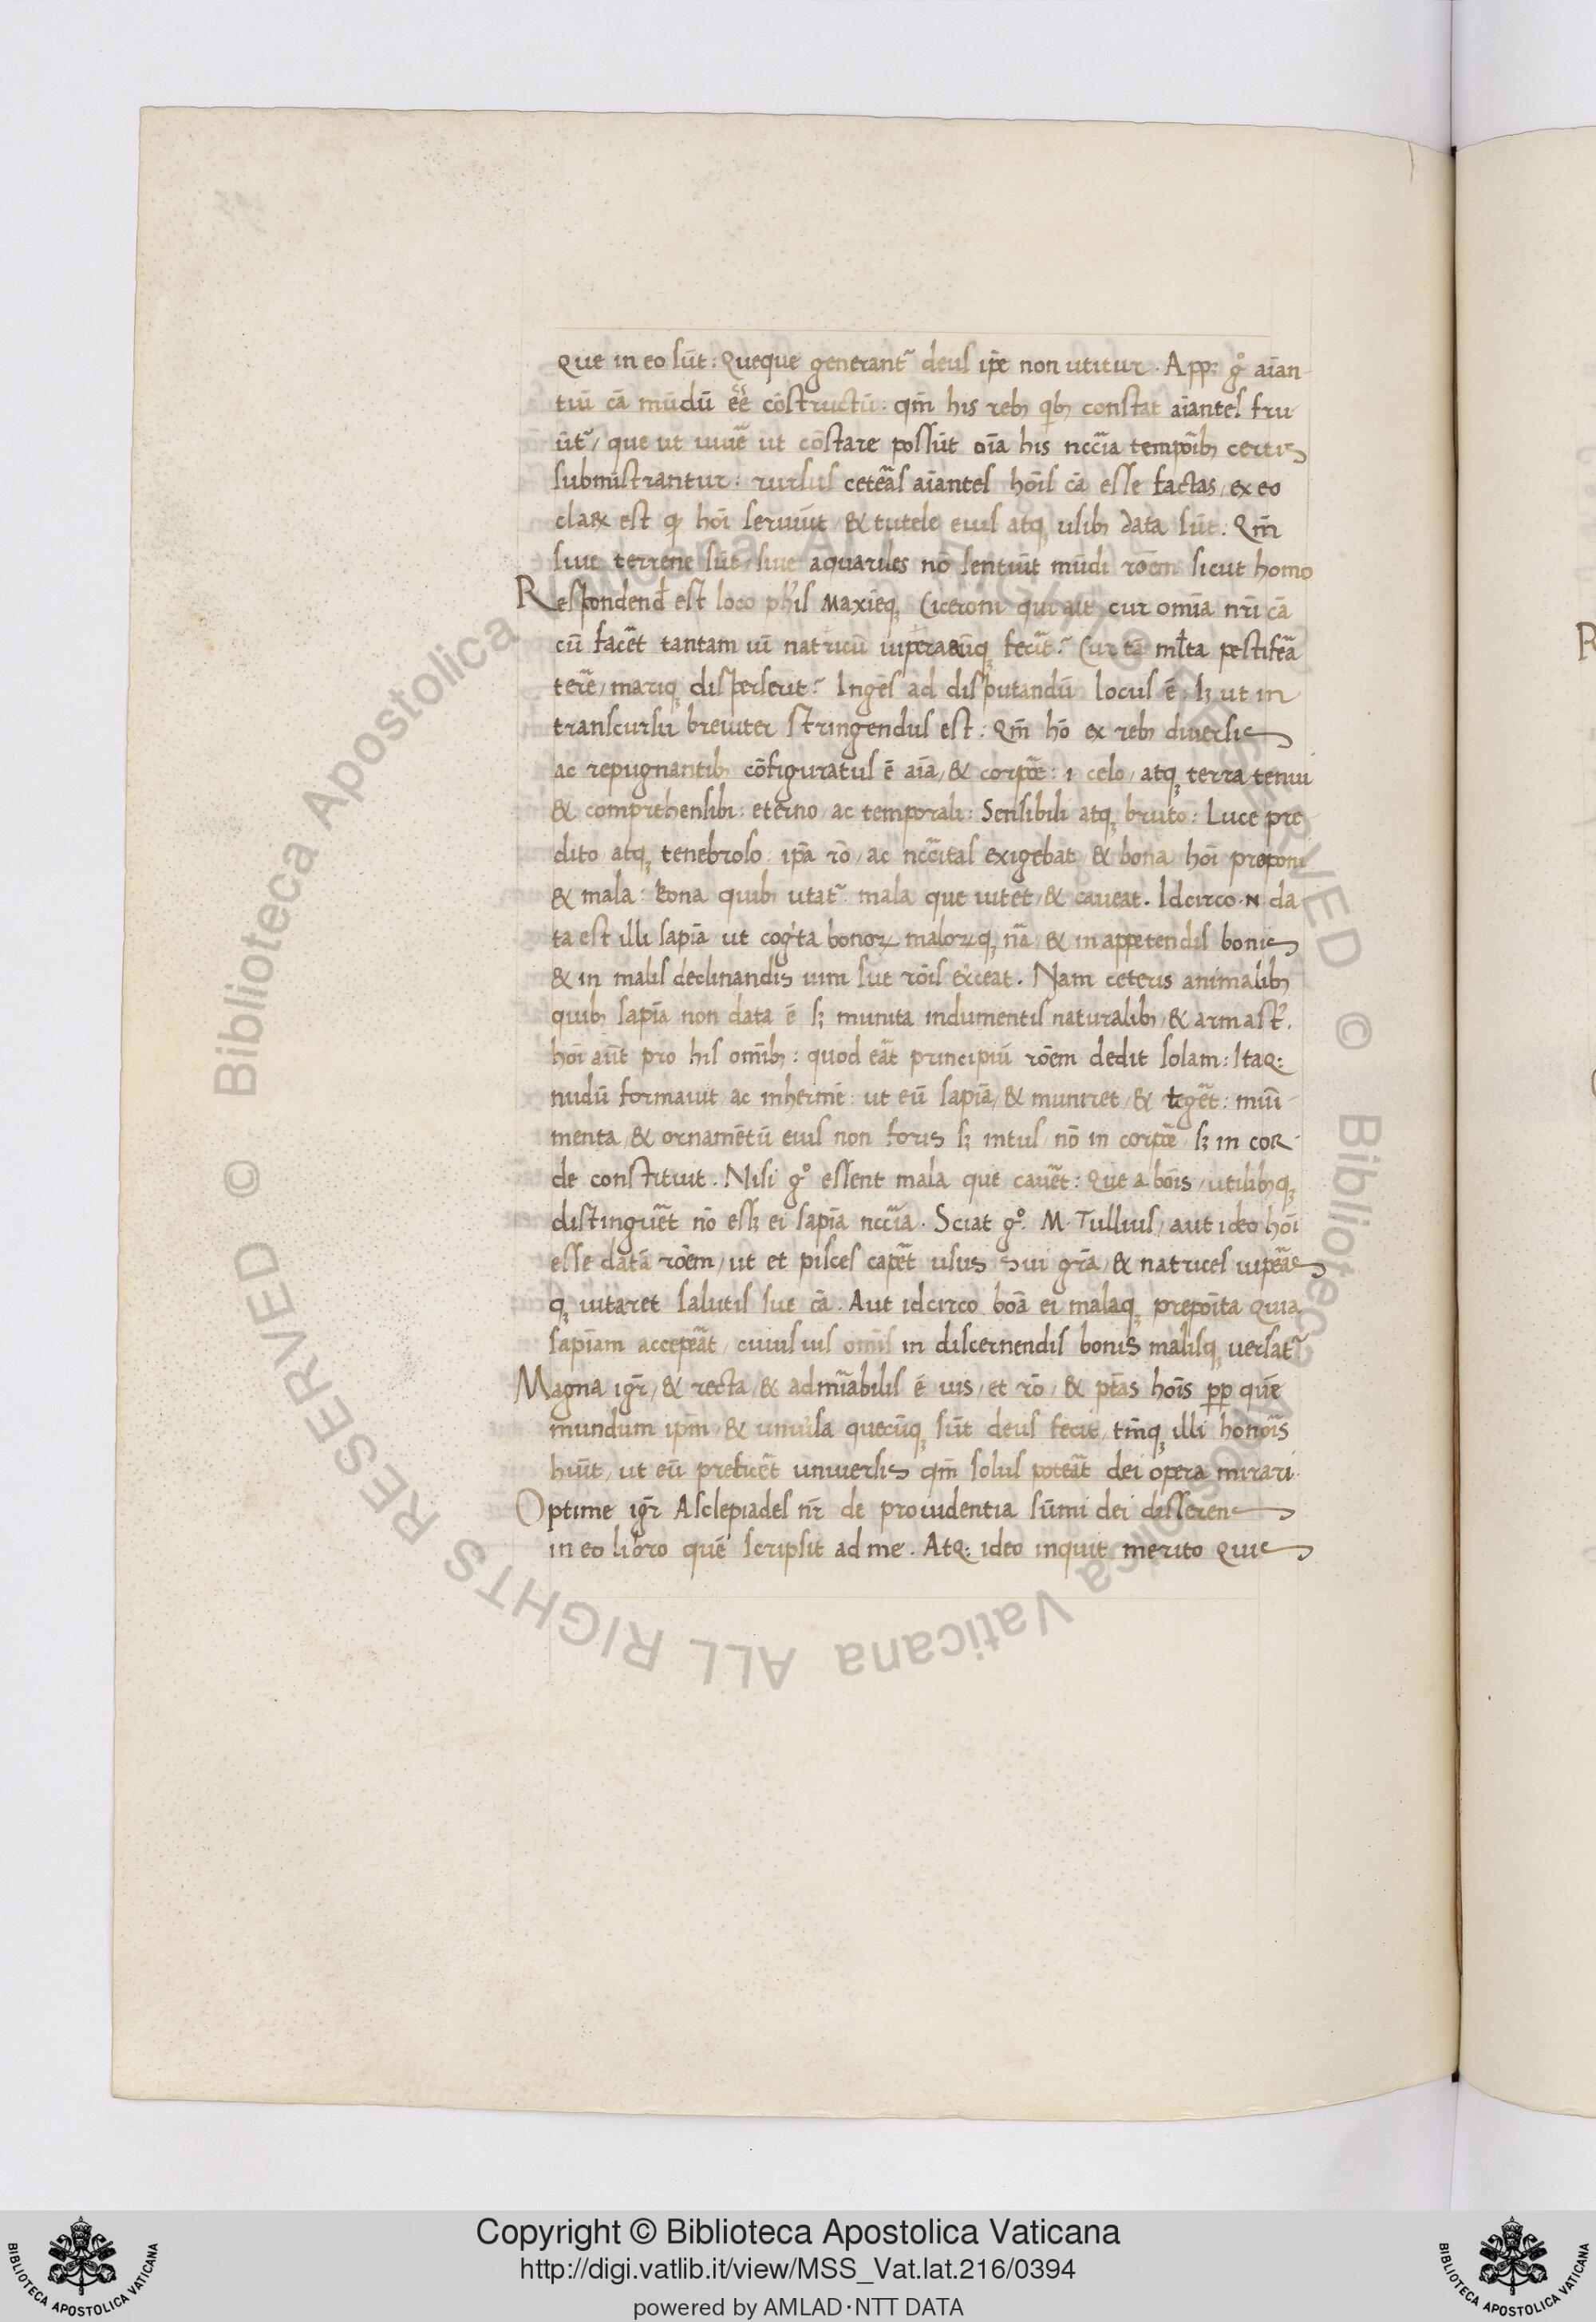 Que in eo sūt: Queque generant᷑ deus ip̄e non utitur. App; g° aīan-
tiū cā mūdū ēē cōstructū. qm̄ his reb; qb; constat aīantes fru-
ūt᷑, que ut uiuē᷑ ut cōstare possūt oīa his nccīa tempōib; certis
submistrantur: rursus ceteās aīantes hoīs cā esse factas, ex eo
claꝝ est ꝙ hoī seruiūt, & tutele eius atq; usib; data sūt: Qm̄
siue terrene sūt, siue aquatiles nō sentiūt mūdi rōem sicut homo
Respondend̄ est loco ph'is Maxīeq; Ciceroni qui ait cur omīa nr̄i cā
cū facēt tantam uī natricū uiperarūq; fecit? Cur tā ml̄ta pestifeā
terē, mariq; disperserit? Ingēs ad disputandū locus ē. sꝫ ut in
transcursu breuiter stringendus est: Qm̄ hō ex reb; diuersis
ac repugnantib; cōfiguratus ē aīa, & corpōe: i celo, atq; terra tenui
& comprehensibi: eterno, ac temporali: Sensibili atq; bruto: Luce pre-
dito atq; tenebroso. ip̄a rō, ac nccītas exigebat, & bona hoī preponi
& mala: bona quib; utat᷑ mala que uitet, & caueat. Idcirco .N. da-
ta est illi sapīa ut cog'ta bonoꝝ maloꝝq; nā, & in appetendis bonis
& in malis declinandis uim sue rōis ex'ceat. Nam ceteris animalib;
quib; sapīa non data ē sꝫ munita indumentis naturalib; & armast'.
hoī aūt pro his omīb;: quod eāt principiū rōem dedit solam: Itaq:
nudū formauit ac inhermē: ut eū sapīa, & muniret, & tegēt: munī-
menta, & ornamētū eius non foris sꝫ intus, nō in corpōe sꝫ in cor-
de constituit. Nisi g° essent mala que cauēt: Que a bōis, utilib;q;
distinguēt nō essꝫ ei sapīa nccīa. Sciat g° M. Tullius, aut ideo hoī
esse datā rōem, ut et pisces capēt usus sui grā, & natrices uipeās
q; uitaret salutis sue cā. Aut idcirco boā ei malaq; prepoīta quia
sapīam accepeāt, cuius uis omīs in discernendis bonis malisq; uersat᷑
Magna igr̄, & recta, & admīabilis ē uis, et rō, & ptās hoīs pp quē
mundum ipm̄ & uniu'sa quecūq; sūt deus fecit, tm̄q; illi honōis
hūit, ut eū preficēt uniuersis qm̄ solus poteāt dei opera mirari.
Optime igr̄ Asclepiades nr̄ de prouidentia sūmi dei disserens
in eo libro quē scripsit ad me. Atq: ideo inquit merito quis
Biblioteca Apostolica Vaticana ALL RIGHTS RESERVED ©
Copyright © Biblioteca Apostolica Vaticana
http://digi.vatlib.it/view/MSS_Vat.lat.216/0394
powered by AMLAD·NTT DATA
BIBLIOTECA APOSTOLICA VATICANA
BIBLIOTECA APOSTOLICA VATICANA